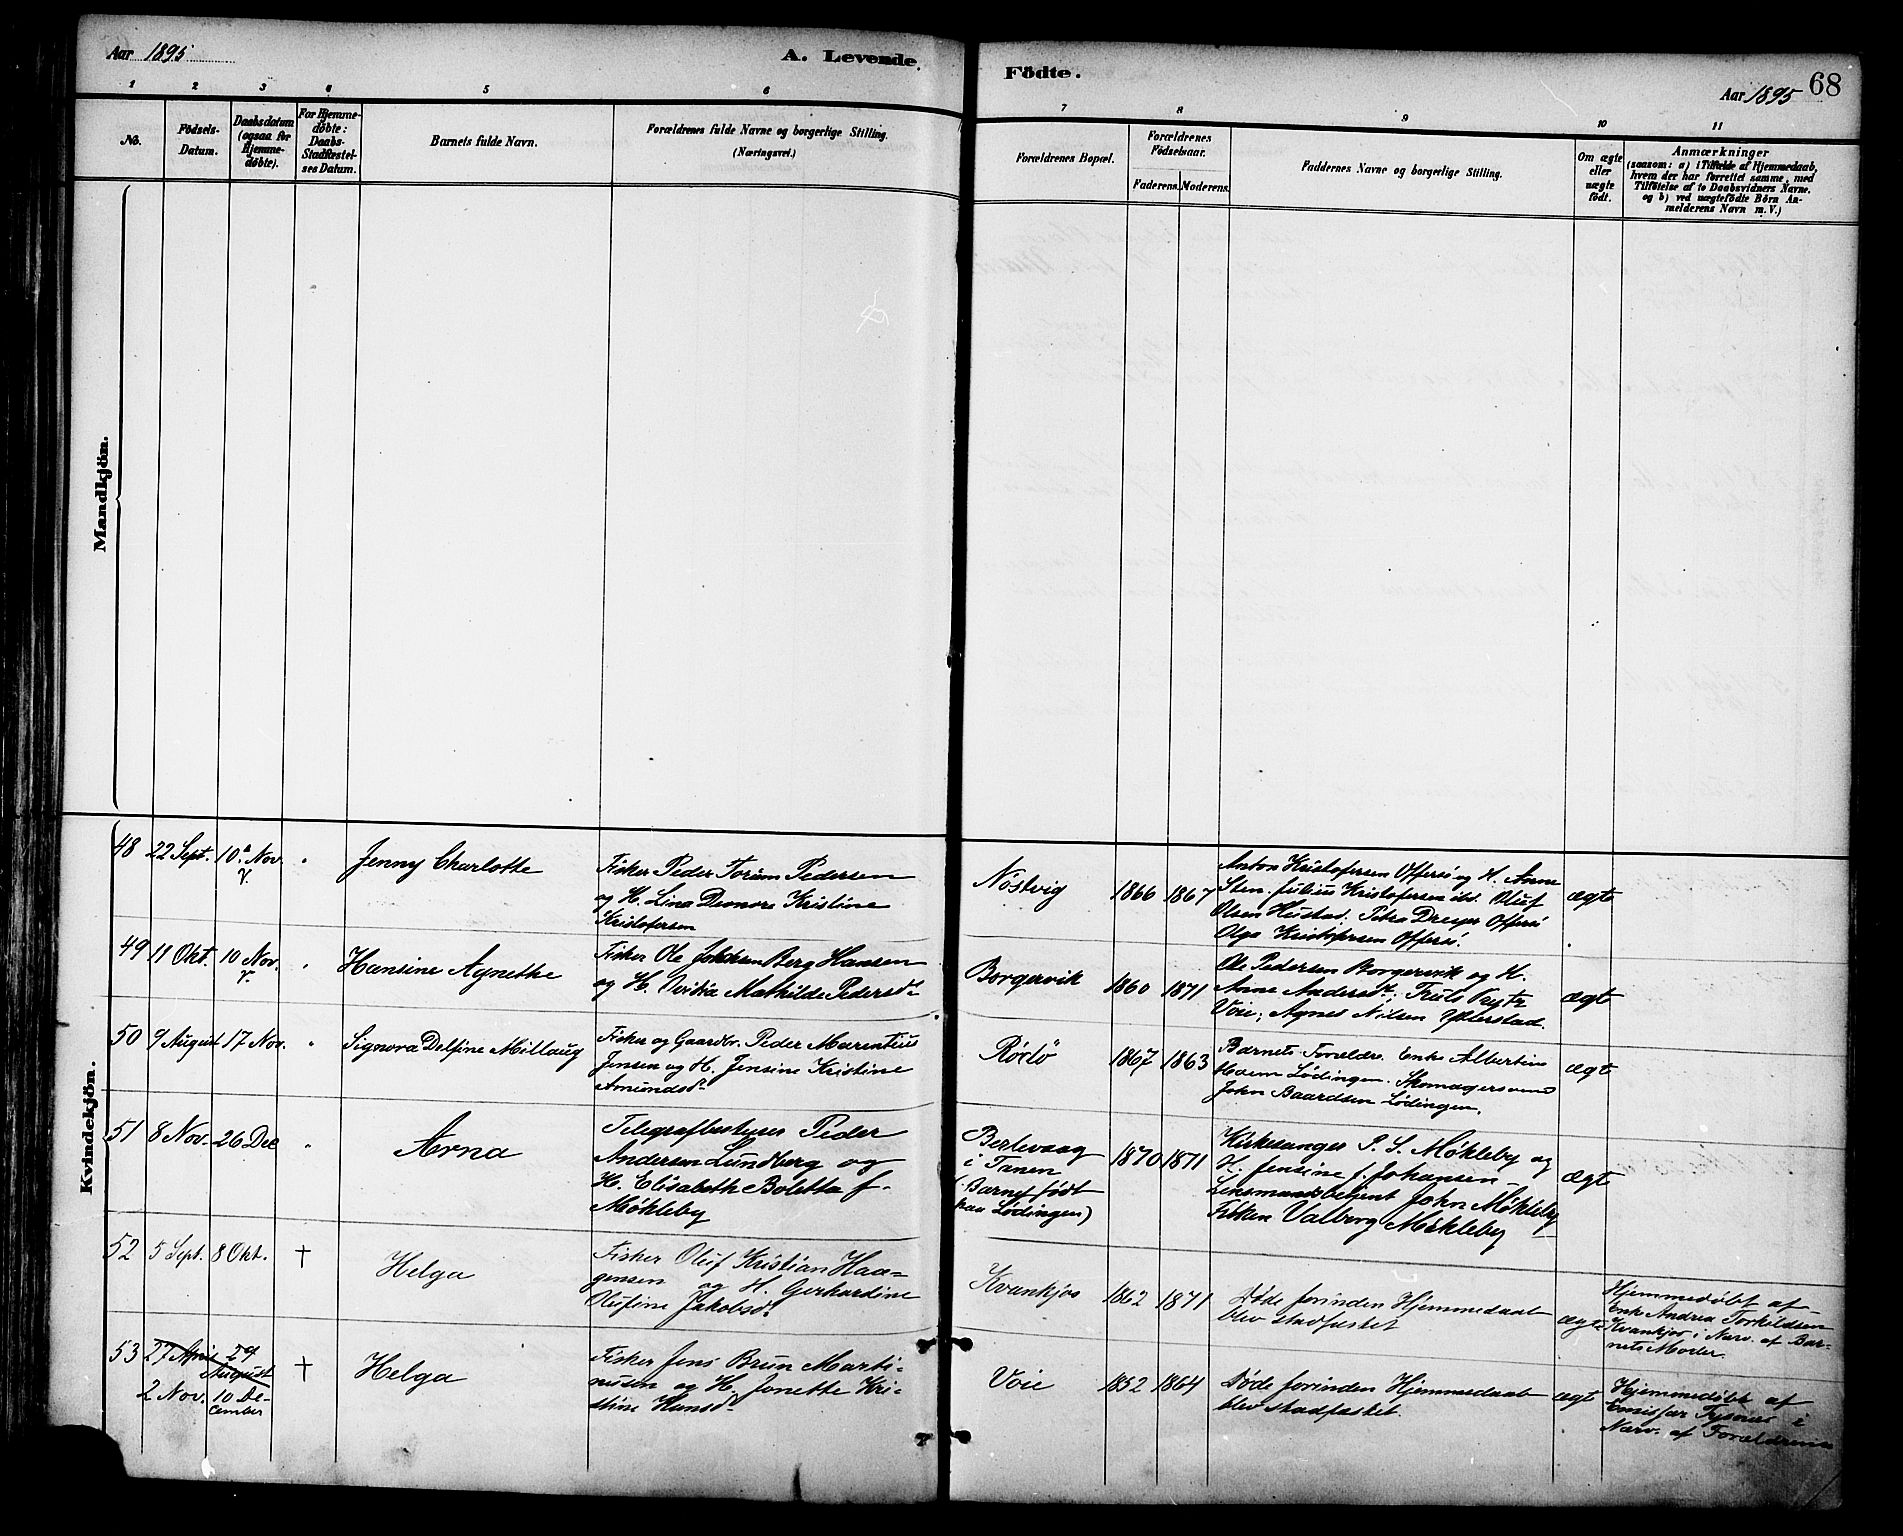 Aar 1895
A. Levende
Födte.
Aar 1895
68
1 2 3 4 5 6 7 8 9 10 11
No.
Födsels-
Datum.
Daabsdatum
(ogsaa for
Hjemme-
døbte).
For Hjemme-
døbte:
Daabs-
Stadfæstel-
ses Datum.
Barnets fulde Navn.
Forældrenes fulde Navne og borgerlige Stilling.
(Næringsvei.)
Forældrenes Bopæl.
Forældrenes
Födselsaar.
Faderens.
Moderens.
Faddernes Navne og borgerlige Stilling.
Om ægte
eller
uægte
født.
Anmærkninger
(saasom: a) i Tilfælde af Hjemmedaab,
hvem der har forrettet samme, med
Tilföielse af to Daabsvidners Navne.
og b) ved uægtefödte Börn An-
melderens Navn m. V.)
Mandkjön.
Kvindekjön.
48 22 Sept. 10 Nov.
V.
Jenny Charlotte
Fisker Peder Torum Pedersen
og H. Lina Deonore Kristine
Kristofersen
Nöstvig 1866 1867
Anton Kristofersen Offersö og H. Anne
Sten. Julius Kristofersen ibd. Oluf
Olsen Hustad. Petra Dreyer Offersö
Olga Kristofersen Offersö.
ægte
49 11 Okt. 10 Nov.
V.
Hansine Agnethe
Fisker Ole Berg Hansen
og H. Ovidia Mathilde Pedersdt
Borgervik 1860 1871
Ole Pedersen Borgervik og H.
Anne Andersdt; Truls Prytz
Voie; Agnes Nilsen Ytterstad.
ægt
50 9 August 17 Nov.
Signora Delfine Millaug
Fisker og Gaardbr. Peder Marentius
Jensen og H. Jensine Kristine
Amundsdt
Rödtö 1867 1863
Barnets Forældre. Enke Albertine
Lödingen. Skomagersvend
John Baardsen Lödingen.
ægt
51 8 Nov. 26 Dec
Arna
Telegrafbestyrer Peder
Andersen Lundberg og
H. Elisabeth Boletta f.
Mökleby
Berlevaag
i Tanen
(Barnet födt
paa Lödingen)
1870 1871
Kirkesanger P. S. Mökleby og
H. Jensine f. Johansen
Lensmandsbetjent John Mökleby
Frøken Valborg Mökleby
ægt
52 5 Sept. 8 Okt. †
Helga
Fisker Oluf Kristian Haa-
gensen og H. Gerhardine
Olufine Jakobsdt
Kvankjos 1862 1871
Döde forinden Hjemmedaab
blev stadfæstet
ægte
Hjemmedöbt af
Enke Andrea Torkildsen
Kvankjos i Nærv. af Bar-
nets Moder.
53 27 April 29
August
2 Nov. 10 De-
cember
†
Helga
Fisker Jens Brun Marti-
nusen og H. Jonette Kri-
stine Hansdt
Voie 1852 1864
Döde forinden Hjemmedaab
blev stadfæstet.
ægt
Hjemmedöbt af
Emissær i
Nærv. af Forældrene